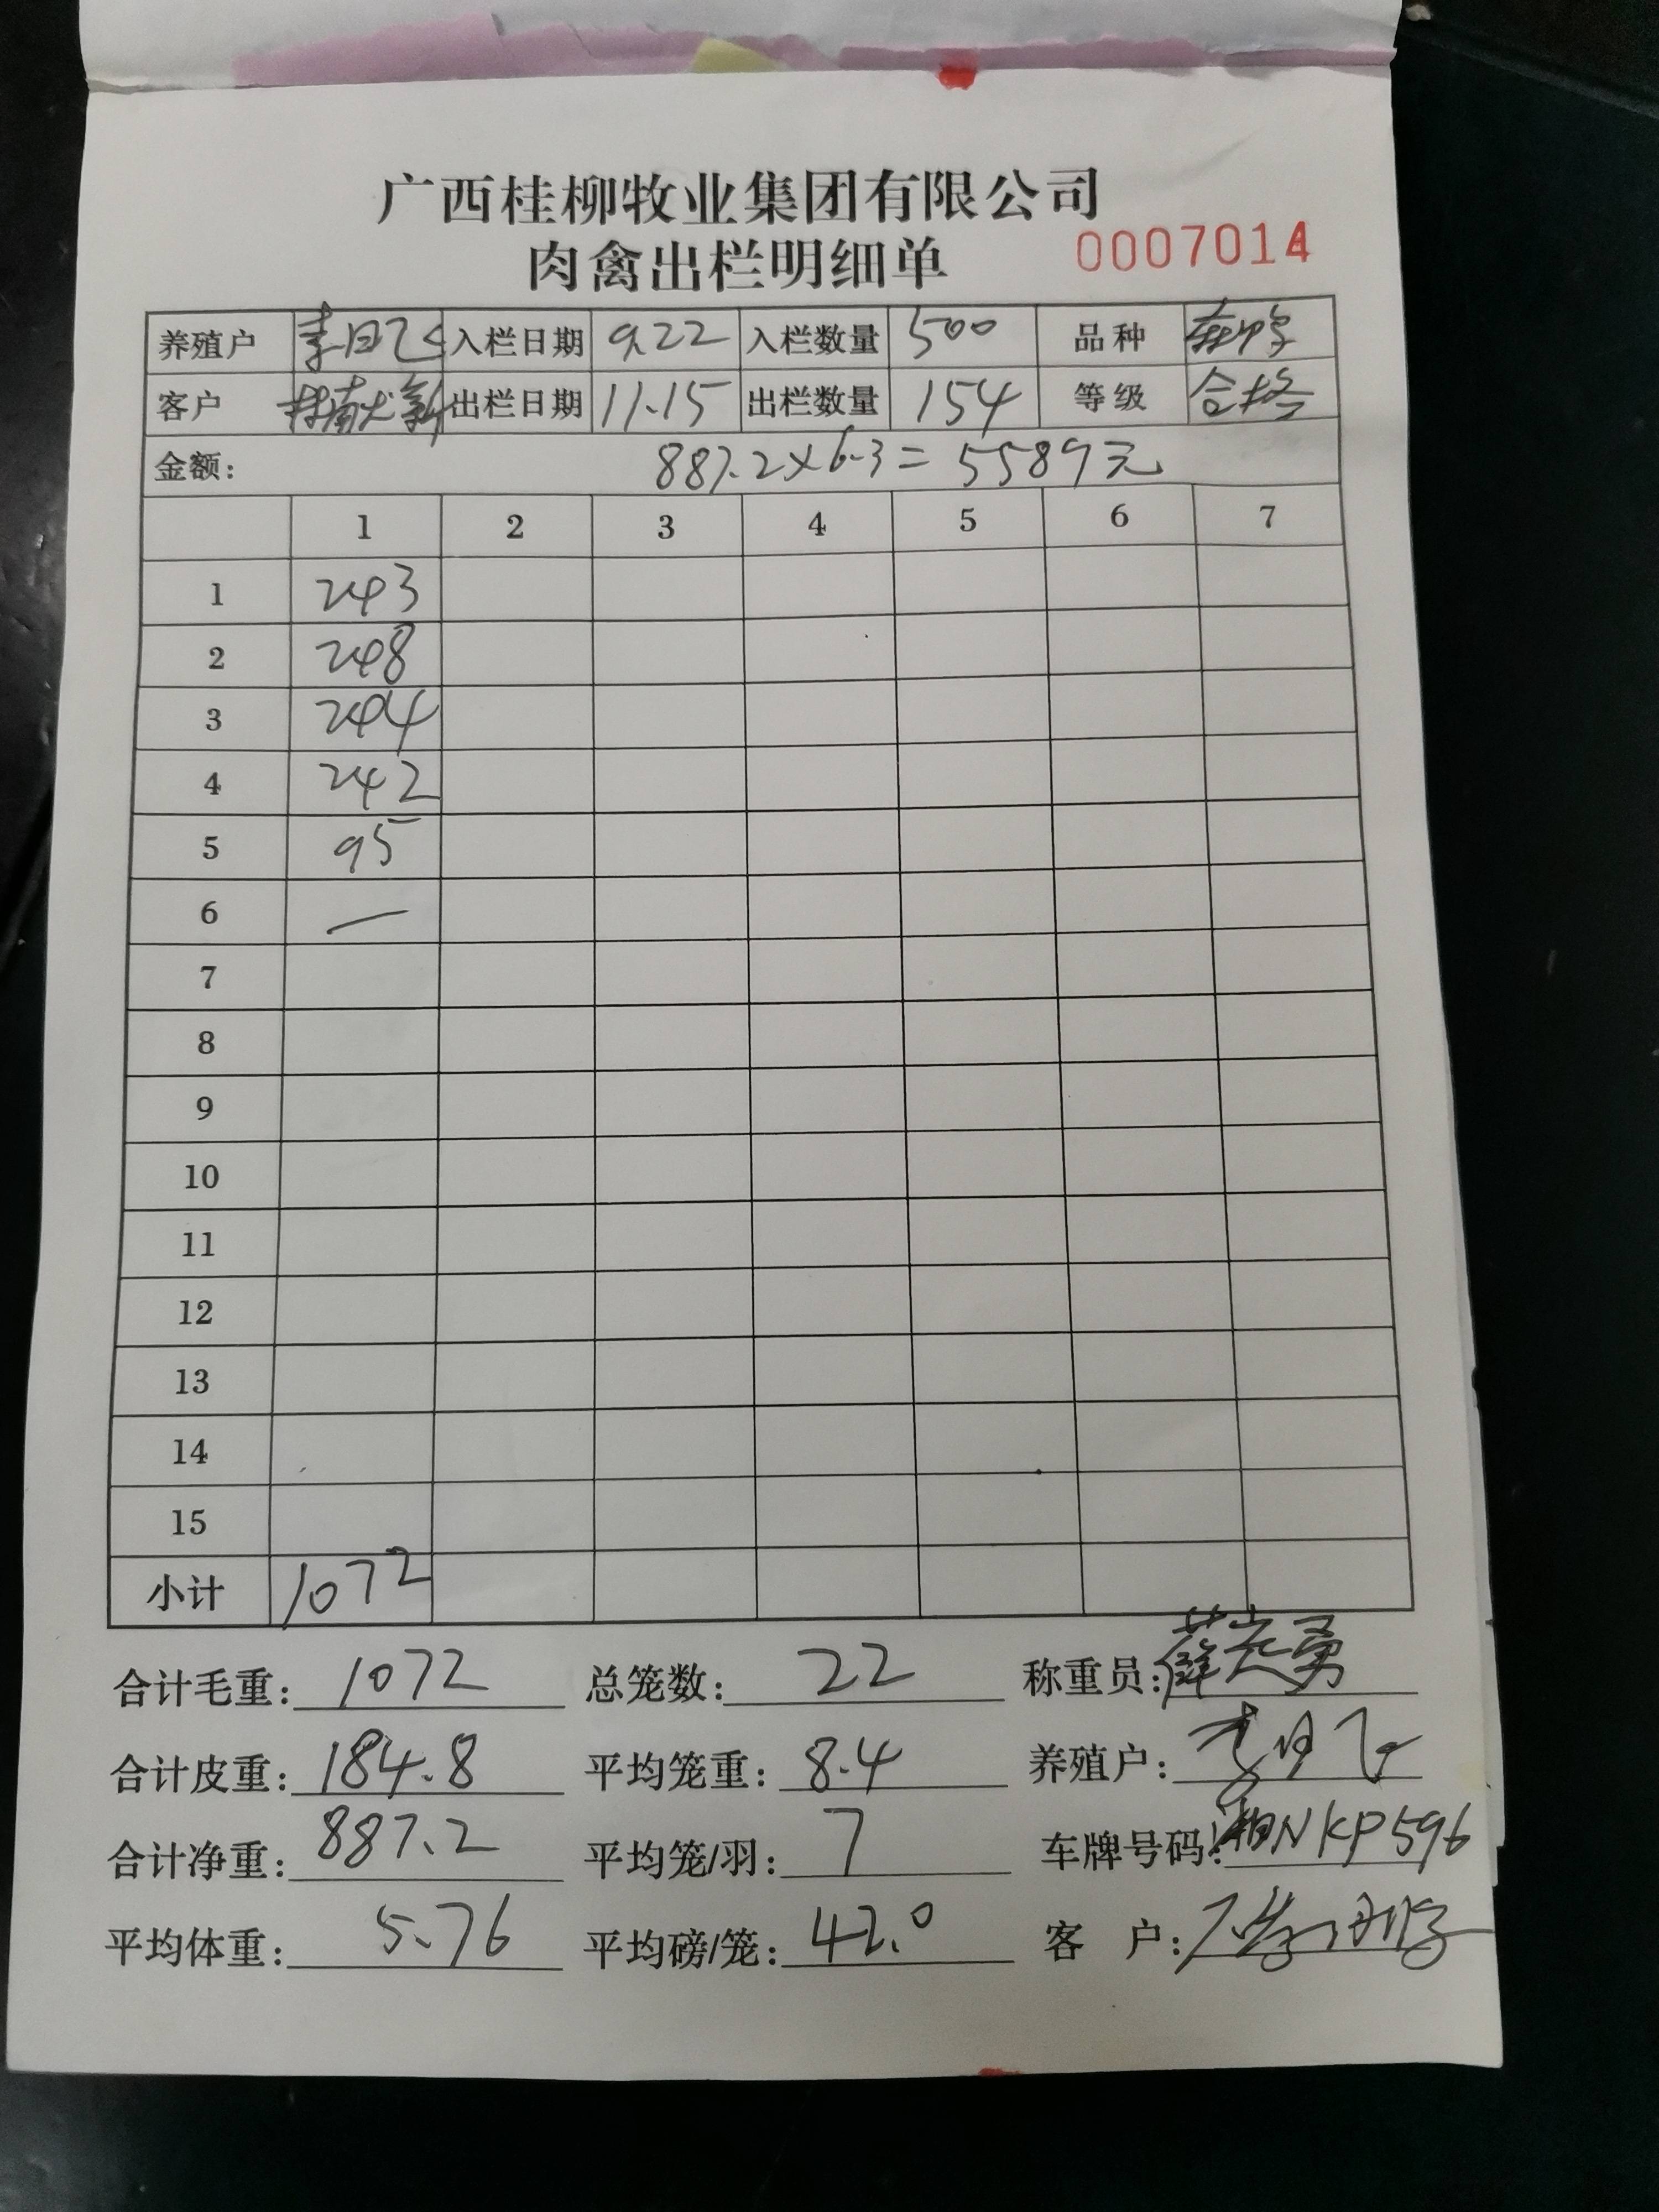 广西桂柳牧业集团有限公司
肉禽出栏明细单 0007014
养殖户 入栏日期 9.22 入栏数量 500 品种
客户 出栏日期 11.15 出栏数量 154 等级 合格
金额: 887.2×6.3=5589元
1 2 3 4 5 6 7
1 243
2 248
3 244
4 242
5 95
6 —
7
8
9
10
11
12
13
14
15
小计 1072
合计毛重: 1072 总笼数: 22 称重员:
合计皮重: 184.8 平均笼重: 8.4 养殖户:
合计净重: 887.2 平均笼/羽: 7 车牌号码: 湘NKP596
平均体重: 5.76 平均磅/笼: 42.0 客 户: